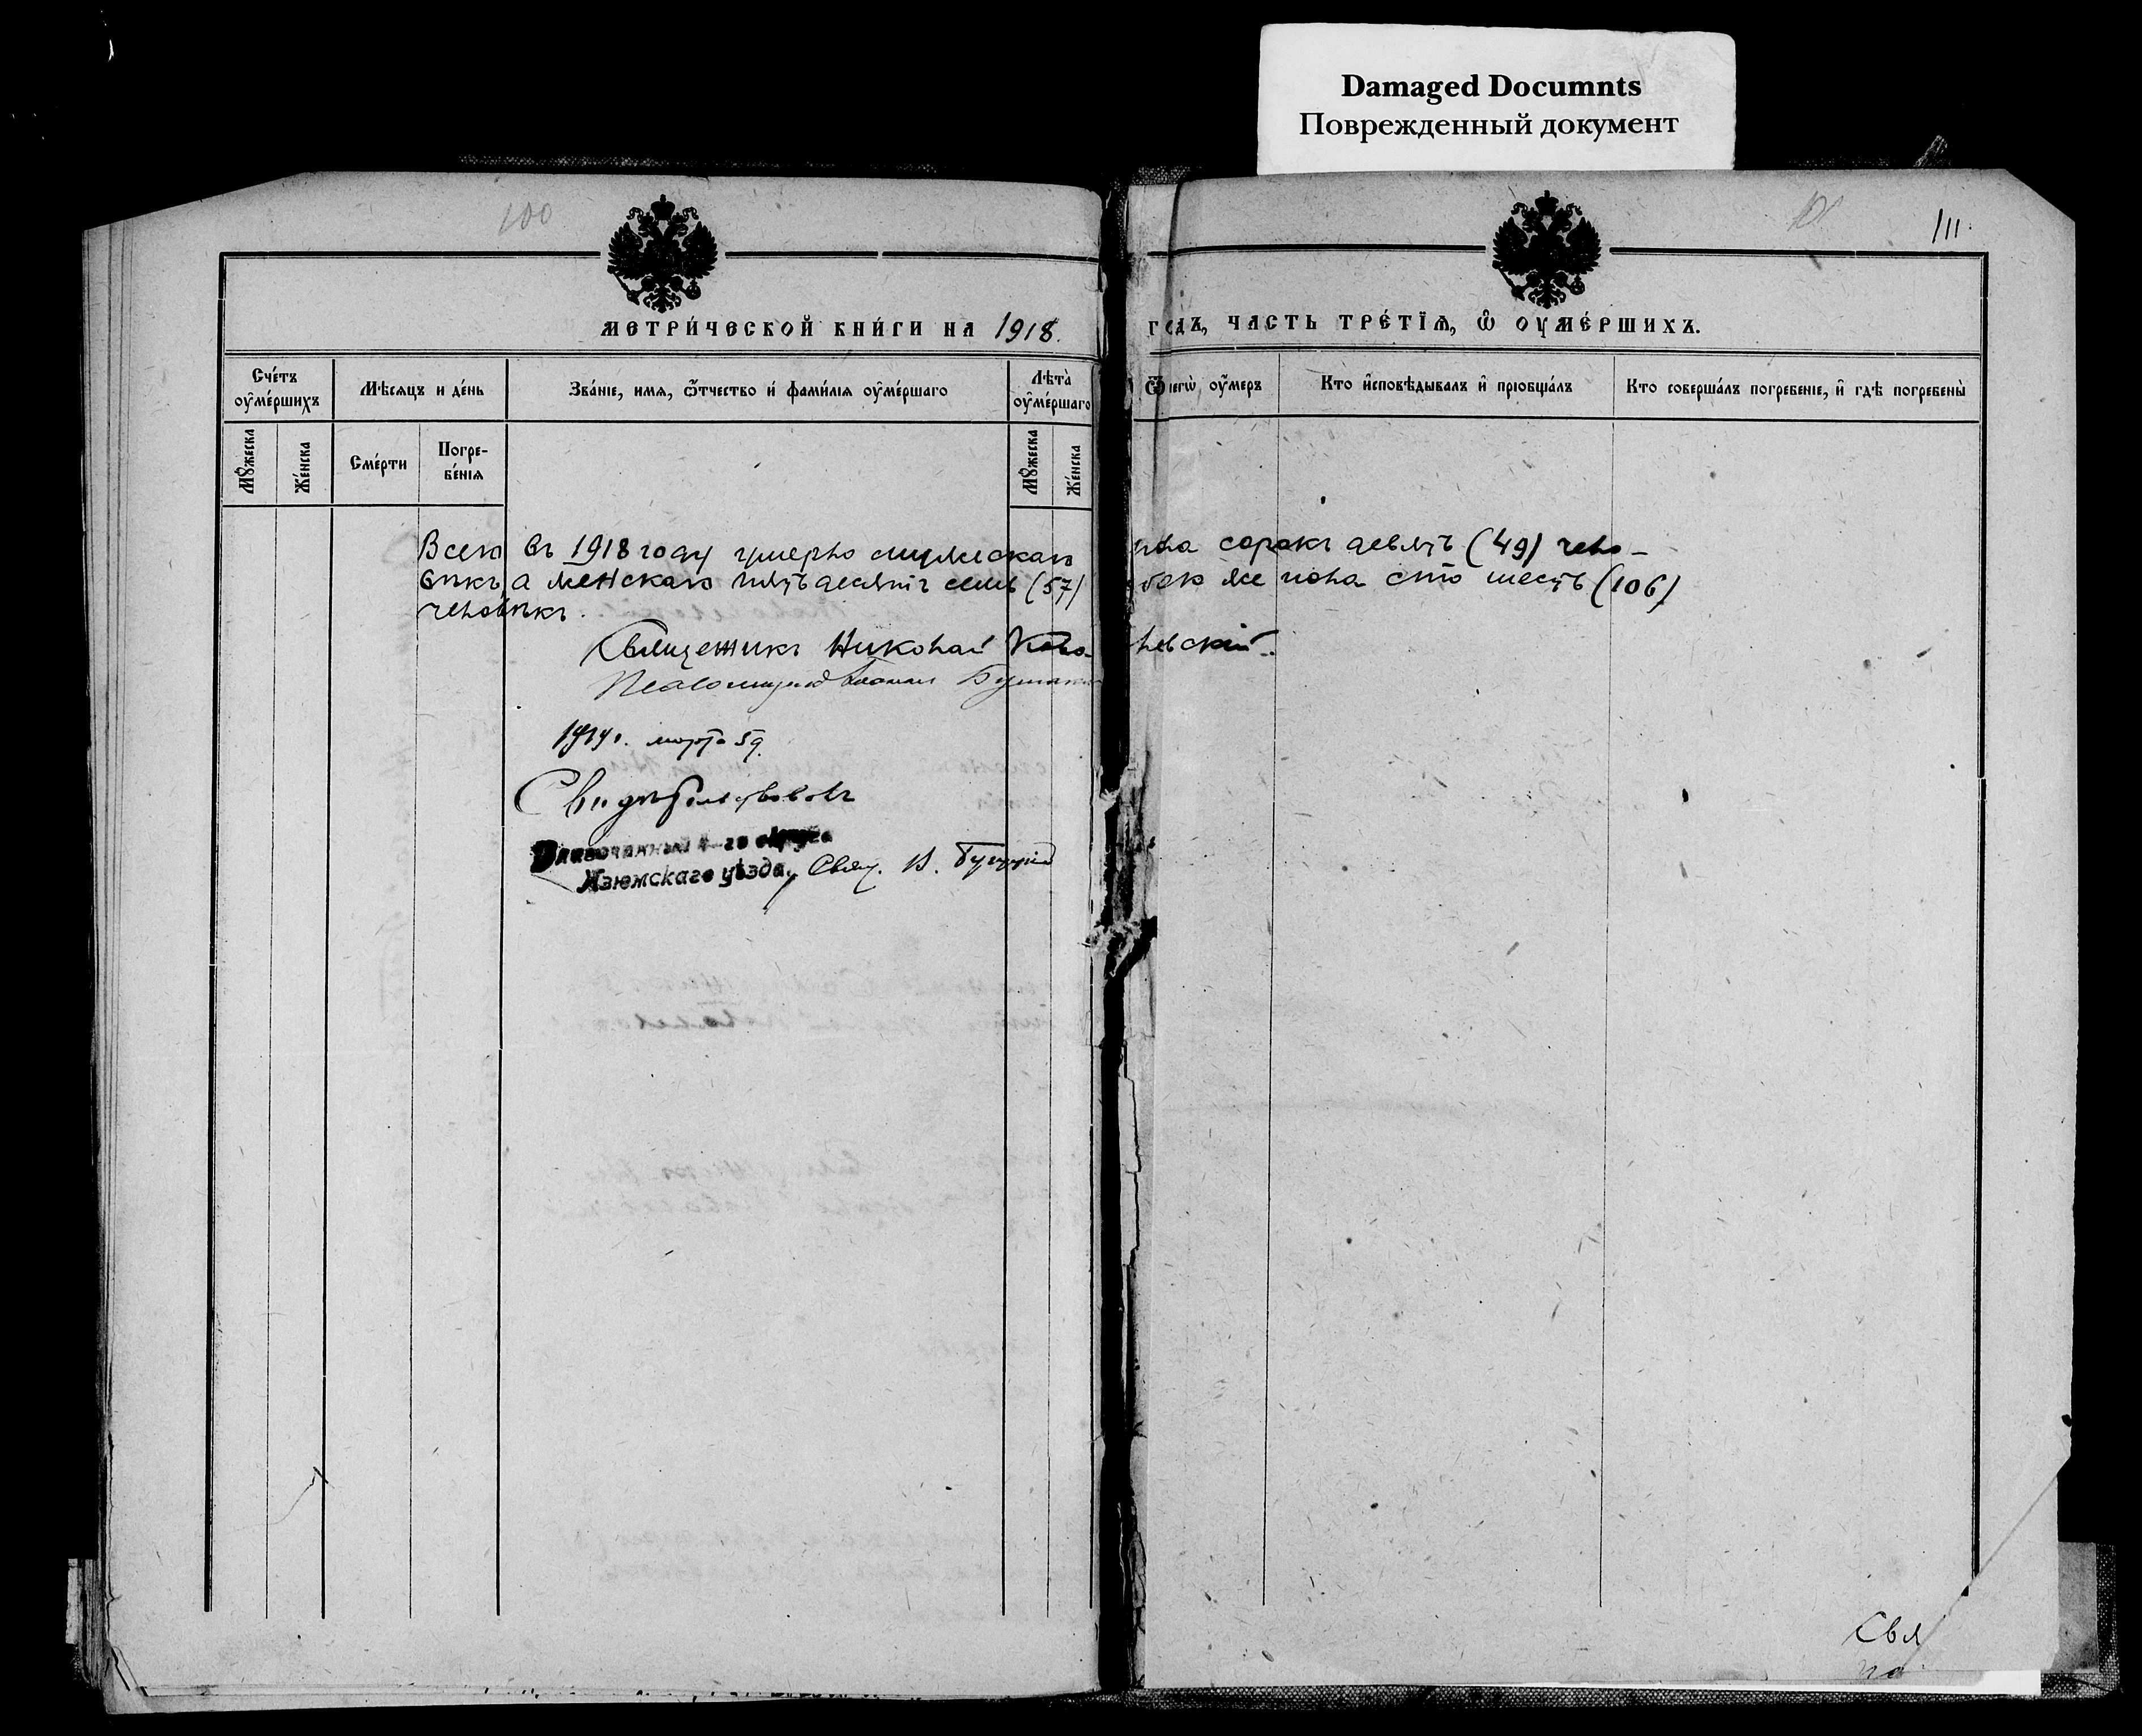 Damaged Documnts
Поврежденный документ
100
111
МЕТРИ́ЧЕСКОЙ КНИ́ГИ НА 1918 ГОДЪ, ЧАСТЬ ТРЕ́ТЇѦ, Ѽ ОУ҆МЕ́РШИХЪ.
Сче́тъ оу҆ме́ршихъ
Мѣсяцъ и де́нь
Зва́нїе, имя, ѿтчество и҆ фами́лїя оу҆ме́ршаго
Лѣта̀ оу҆ме́ршаго
Ѿ чегѡ̀ оу҆́меръ
Кто̀ и҆сповѣ́дывалъ и҆ прїобща́лъ
Кто̀ соверша́лъ погребе́нїе, и҆ гдѣ̀ погребены̀
Мꙋжеска
Же́нска
Сме́рти
Погре-
бе́нїя
Мꙋжеска
Же́нска
Всего въ 1918 году умерло мужескаго пола сорокъ девять (49) чело-
вѣкъ, а женскаго пятьдесятъ семь (57) обоего же пола сто шесть (106)
человѣкъ.
Священникъ Николай Ковалевскій.
Псаломщикъ
1919г. марта 5 д.
Свидѣтельствовалъ
Благочинный 4-го округа
Изюмскаго уѣзда, Свящ. В.
Свя